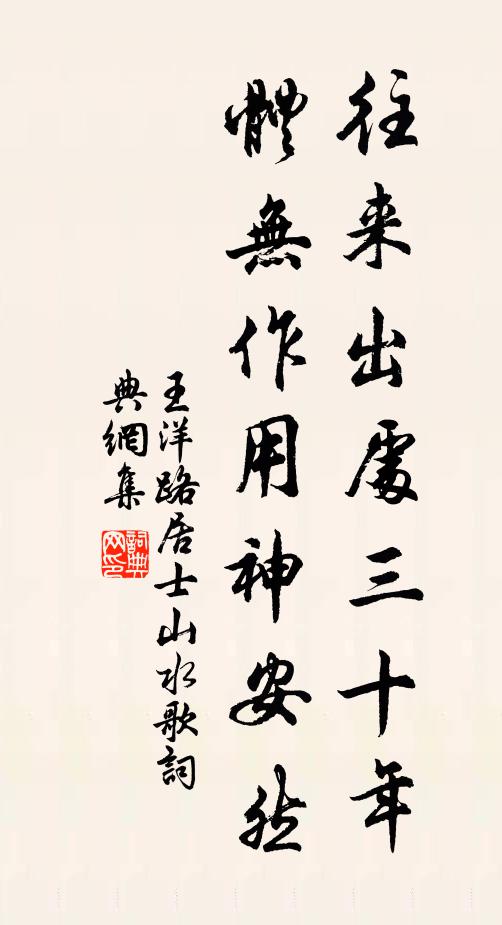 往来出處三十年
體無作用神安然
王洋路居士山水歌詞
典網集
詞典
网印